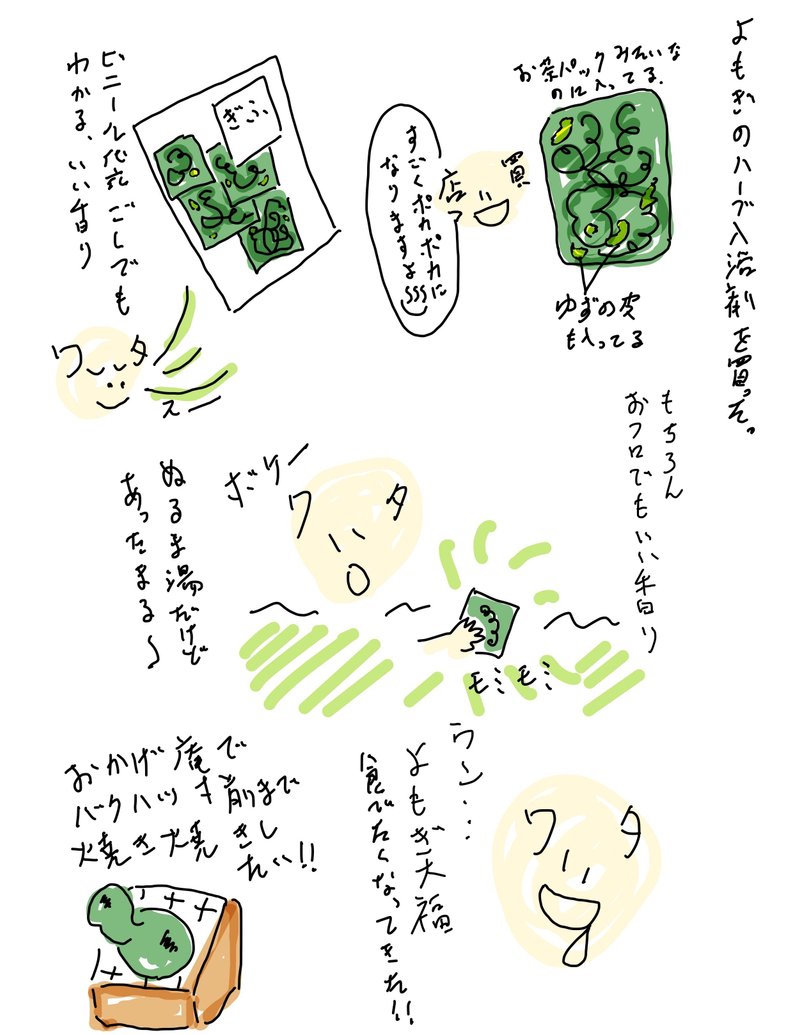 よもぎのハーブ入浴剤を買った。
お茶パックみたいな
のに入ってる。
ゆずの皮
も入ってる
店
買
すごくポカポカに
なりますよ
ぎふ
ビニール袋ごしでも
わかる、いい香り
ワ
タ
スー
もちろん
おフロでもいい香り
ワ
タ
モミモミ
ぬるま湯だけど
あったまる〜
ワ
タ
ウン...
よもぎ大福
食べたくなってきた!!
おかげ庵で
バクハツ寸前まで
焼き焼きし
たい!!